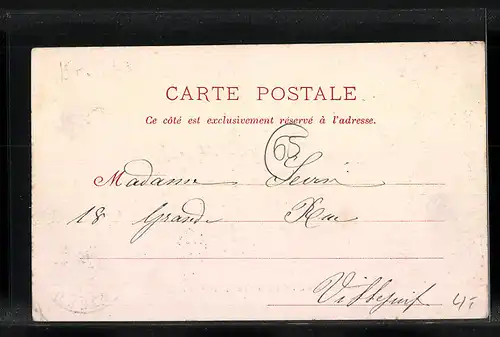 CARTE POSTALE
Ce côté est exclusivement réservé à l'adresse.
65
Madame Sevin
18 Grande Rue
Villejuif
4,-